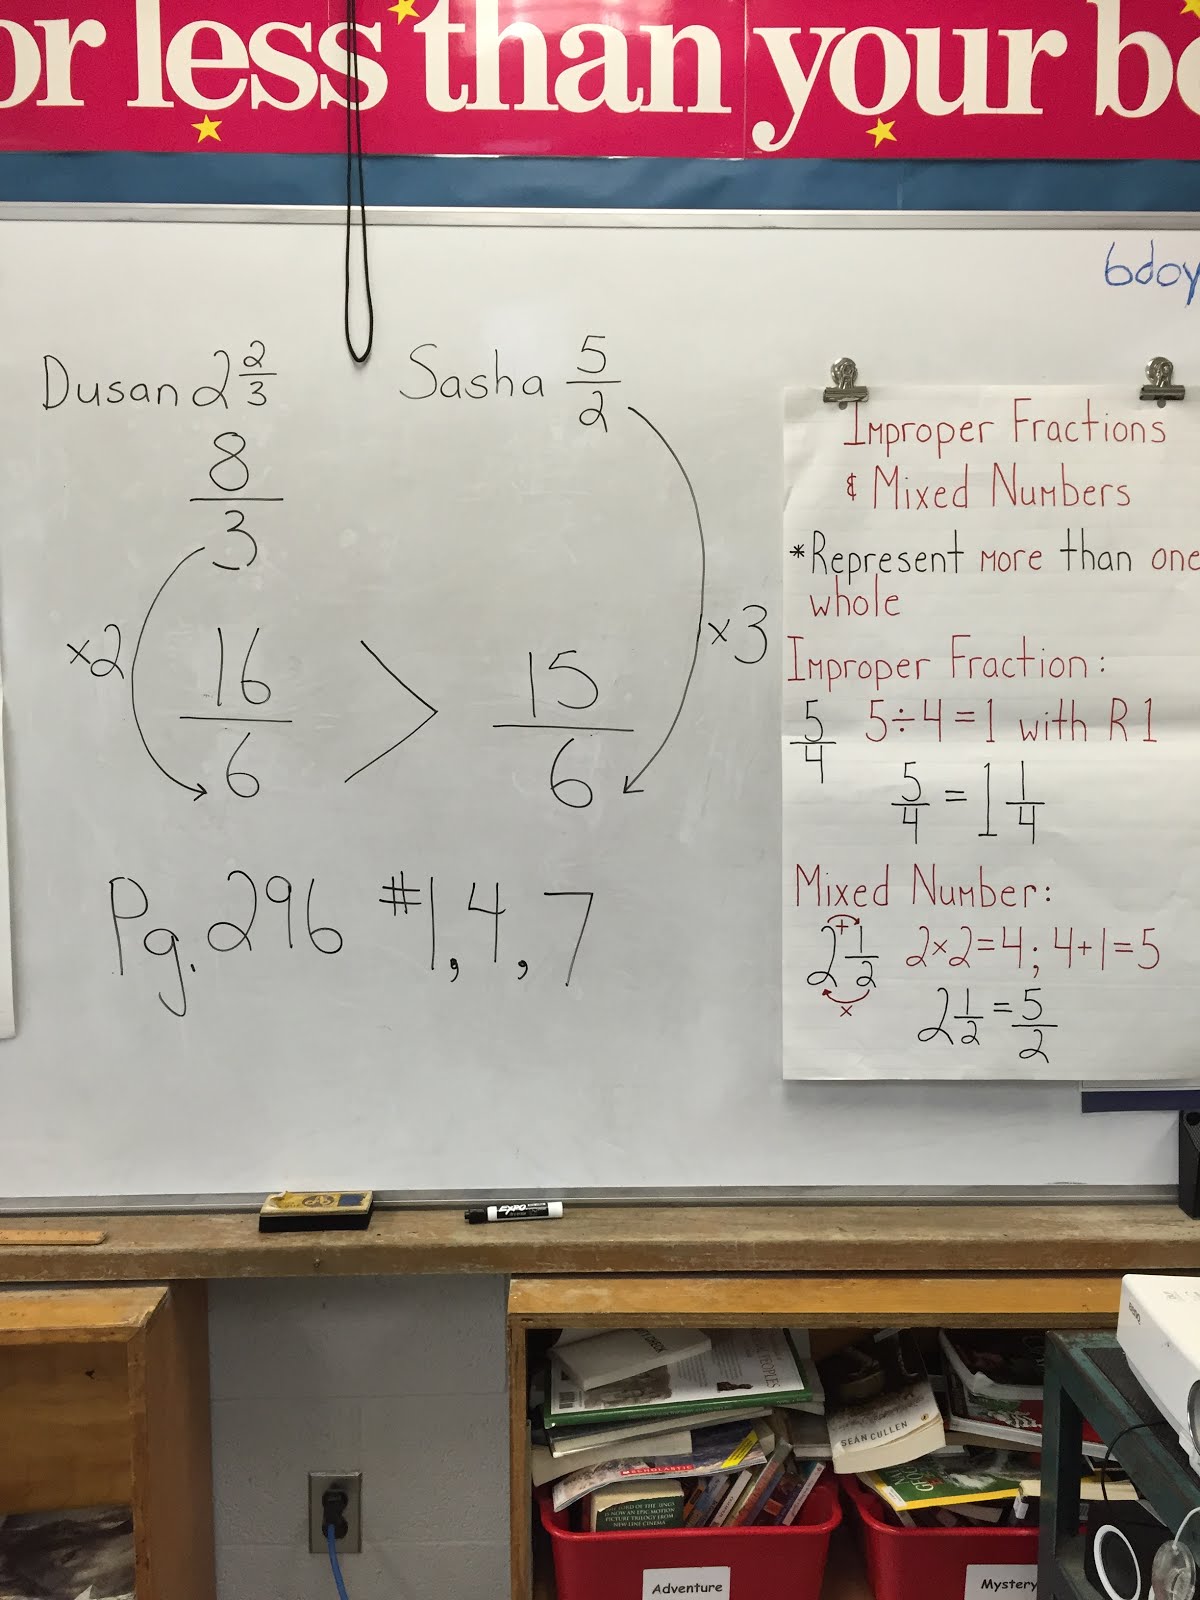 or less than your be
6doy
Dusan 2 2/3
8/3
×2
16/6 > 15/6
Sasha 5/2
×3
Pg. 296 #1, 4, 7
Improper Fractions
& Mixed Numbers
*Represent more than one
whole
Improper Fraction:
5/4 5÷4=1 with R1
5/4 = 1 1/4
Mixed Number:
+
2 1/2 2×2=4; 4+1=5
×
2 1/2 = 5/2
EXPO
SEÁN CULLEN
SCHOLASTIC
LORD OF THE RINGS
NOW AN EPIC MOTION
PICTURE TRILOGY FROM
NEW LINE CINEMA
Adventure
Mystery